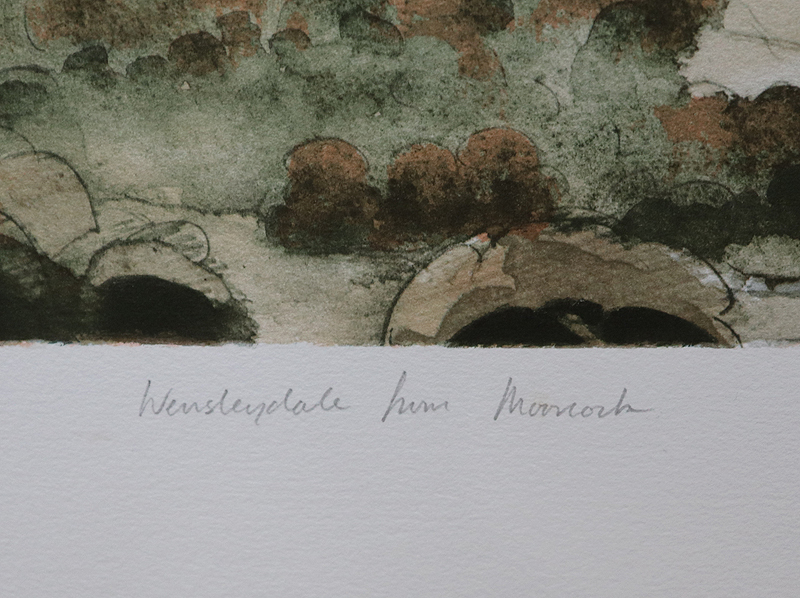 Wensleydale from Moorcock